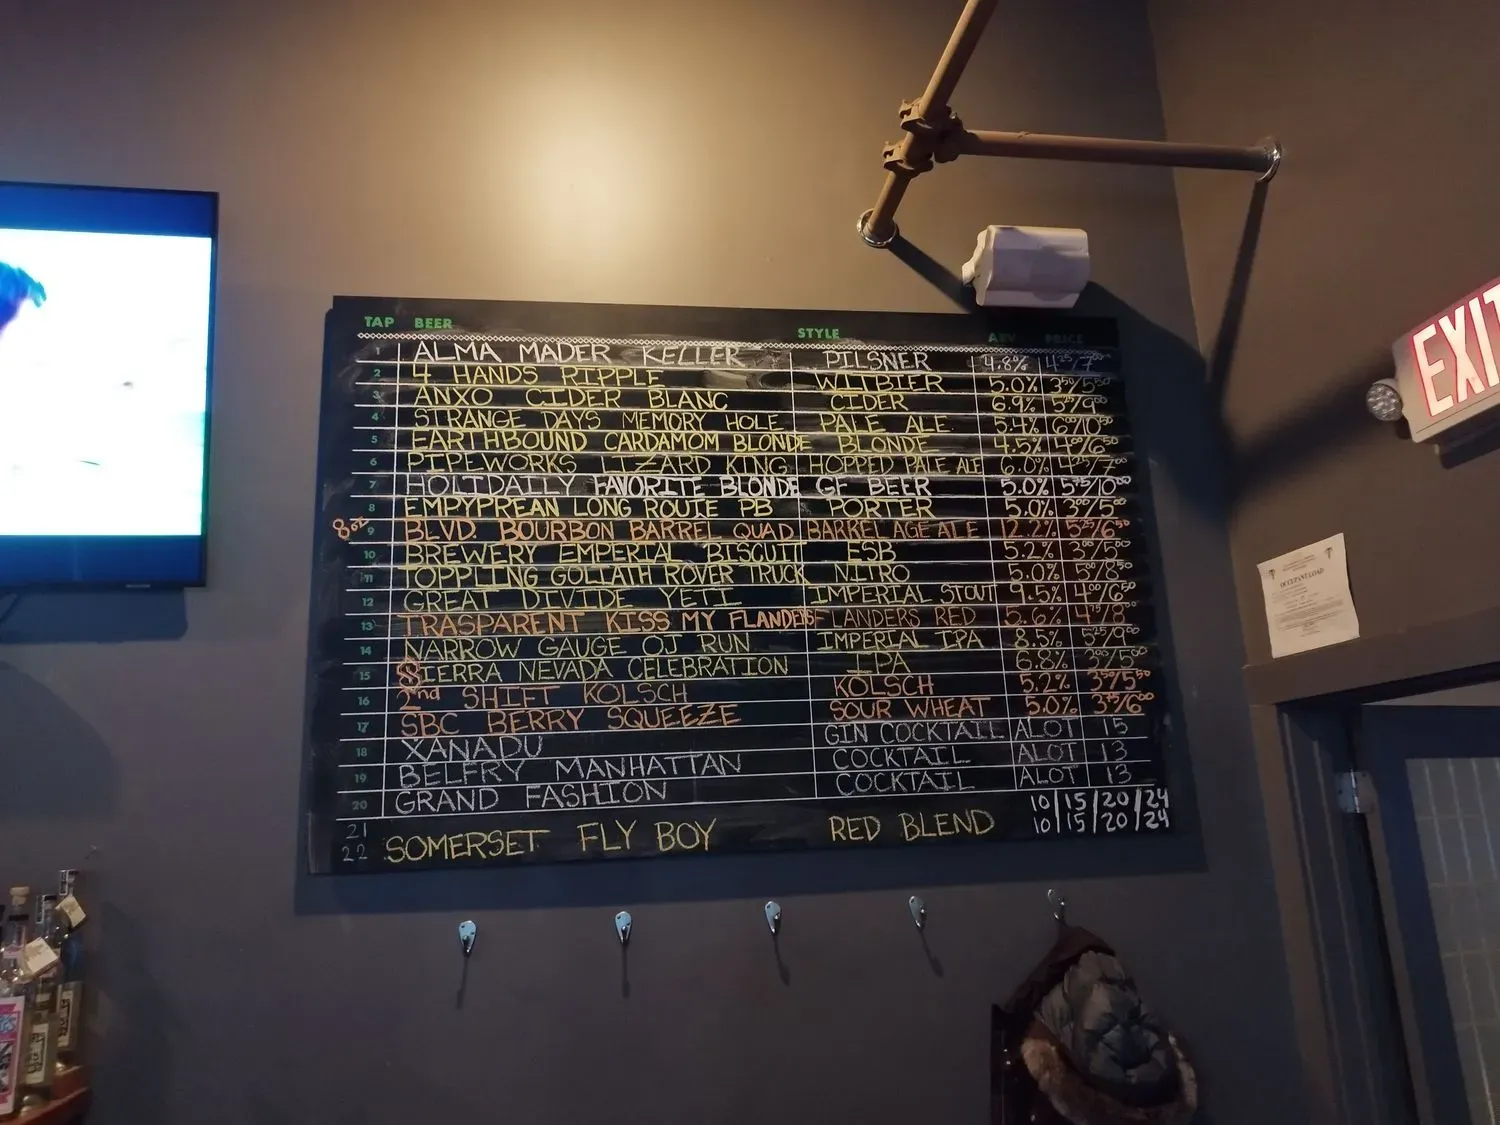 TAP BEER STYLE ABV PRICE
1 ALMA MADER KELLER PILSNER 4.8% 4²⁵/7⁰⁰
2 4 HANDS RIPPLE WITBIER 5.0% 3⁵⁰/5⁵⁰
3 ANXO CIDER BLANC CIDER 6.9% 5²⁵/9⁰⁰
4 STRANGE DAYS MEMORY HOLE PALE ALE 5.4% 6⁰⁰/10⁵⁰
5 EARTHBOUND CARDAMOM BLONDE BLONDE 4.5% 4⁰⁰/6⁵⁰
6 PIPEWORKS LIZARD KING HOPPED PALE ALE 6.0% 4²⁵/7⁰⁰
7 HOLIDAILY FAVORITE BLONDE GF BEER 5.0% 5⁷⁵/10⁰⁰
8 EMPYPREAN LONG ROUTE PB PORTER 5.0% 3⁰⁰/5⁰⁰
8oz 9 BLVD. BOURBON BARREL QUAD BARREL AGE ALE 12.2% 5²⁵/6⁵⁰
10 BREWERY EMPERIAL BISCUIT ESB 5.2% 3⁰⁰/5⁰⁰
11 TOPPLING GOLIATH ROVER TRUCK NITRO 5.0% 5⁰⁰/8⁵⁰
12 GREAT DIVIDE YETI IMPERIAL STOUT 9.5% 4⁰⁰/6⁵⁰
13 TRASPARENT KISS MY FLANDERS FLANDERS RED 5.6% 4⁷⁵/8⁰⁰
14 NARROW GAUGE OJ RUN IMPERIAL IPA 8.5% 5²⁵/9⁰⁰
15 SIERRA NEVADA CELEBRATION IPA 6.8% 3⁰⁰/5⁰⁰
16 2nd SHIFT KOLSCH KOLSCH 5.2% 3⁵⁰/5⁵⁰
17 SBC BERRY SQUEEZE SOUR WHEAT 5.0% 3⁷⁵/6⁰⁰
18 XANADU GIN COCKTAIL ALOT 15
19 BELFRY MANHATTAN COCKTAIL ALOT 13
20 GRAND FASHION COCKTAIL ALOT 13
21 10|15|20|24
22 SOMERSET FLY BOY RED BLEND 10|15|20|24
EXIT
OCCUPANT LOAD